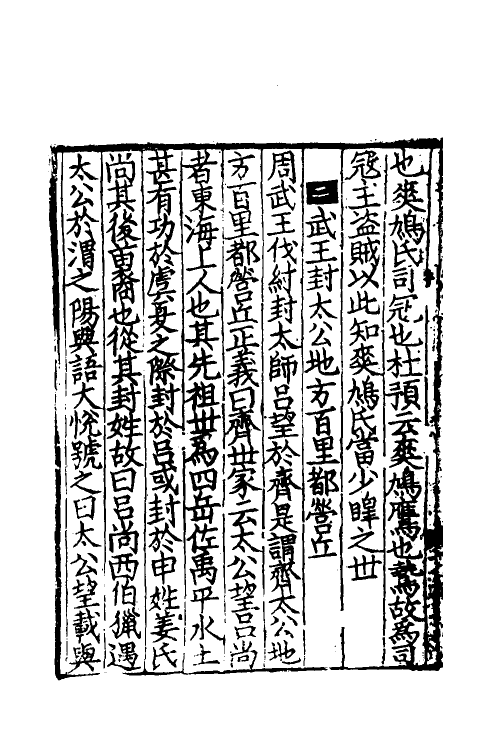 也爽鳩氏司冦也杜預云爽鳩鷹也鷙故爲司
冦主盗賊以此知爽鳩氏當少皥之丗
二武王封太公地方百里都營丘
周武王伐紂封太師吕望於齊是謂齊太公地
方百里都營丘正義曰齊丗家云太公望吕尚
者東海上人也其先祖丗爲四岳佐禹平水土
甚有功於虞夏之際封於吕或封於申姓姜氏
尚其後苗裔也從其封姓故曰吕尚西伯獵遇
太公於渭之陽與語大悅號之曰太公望載與